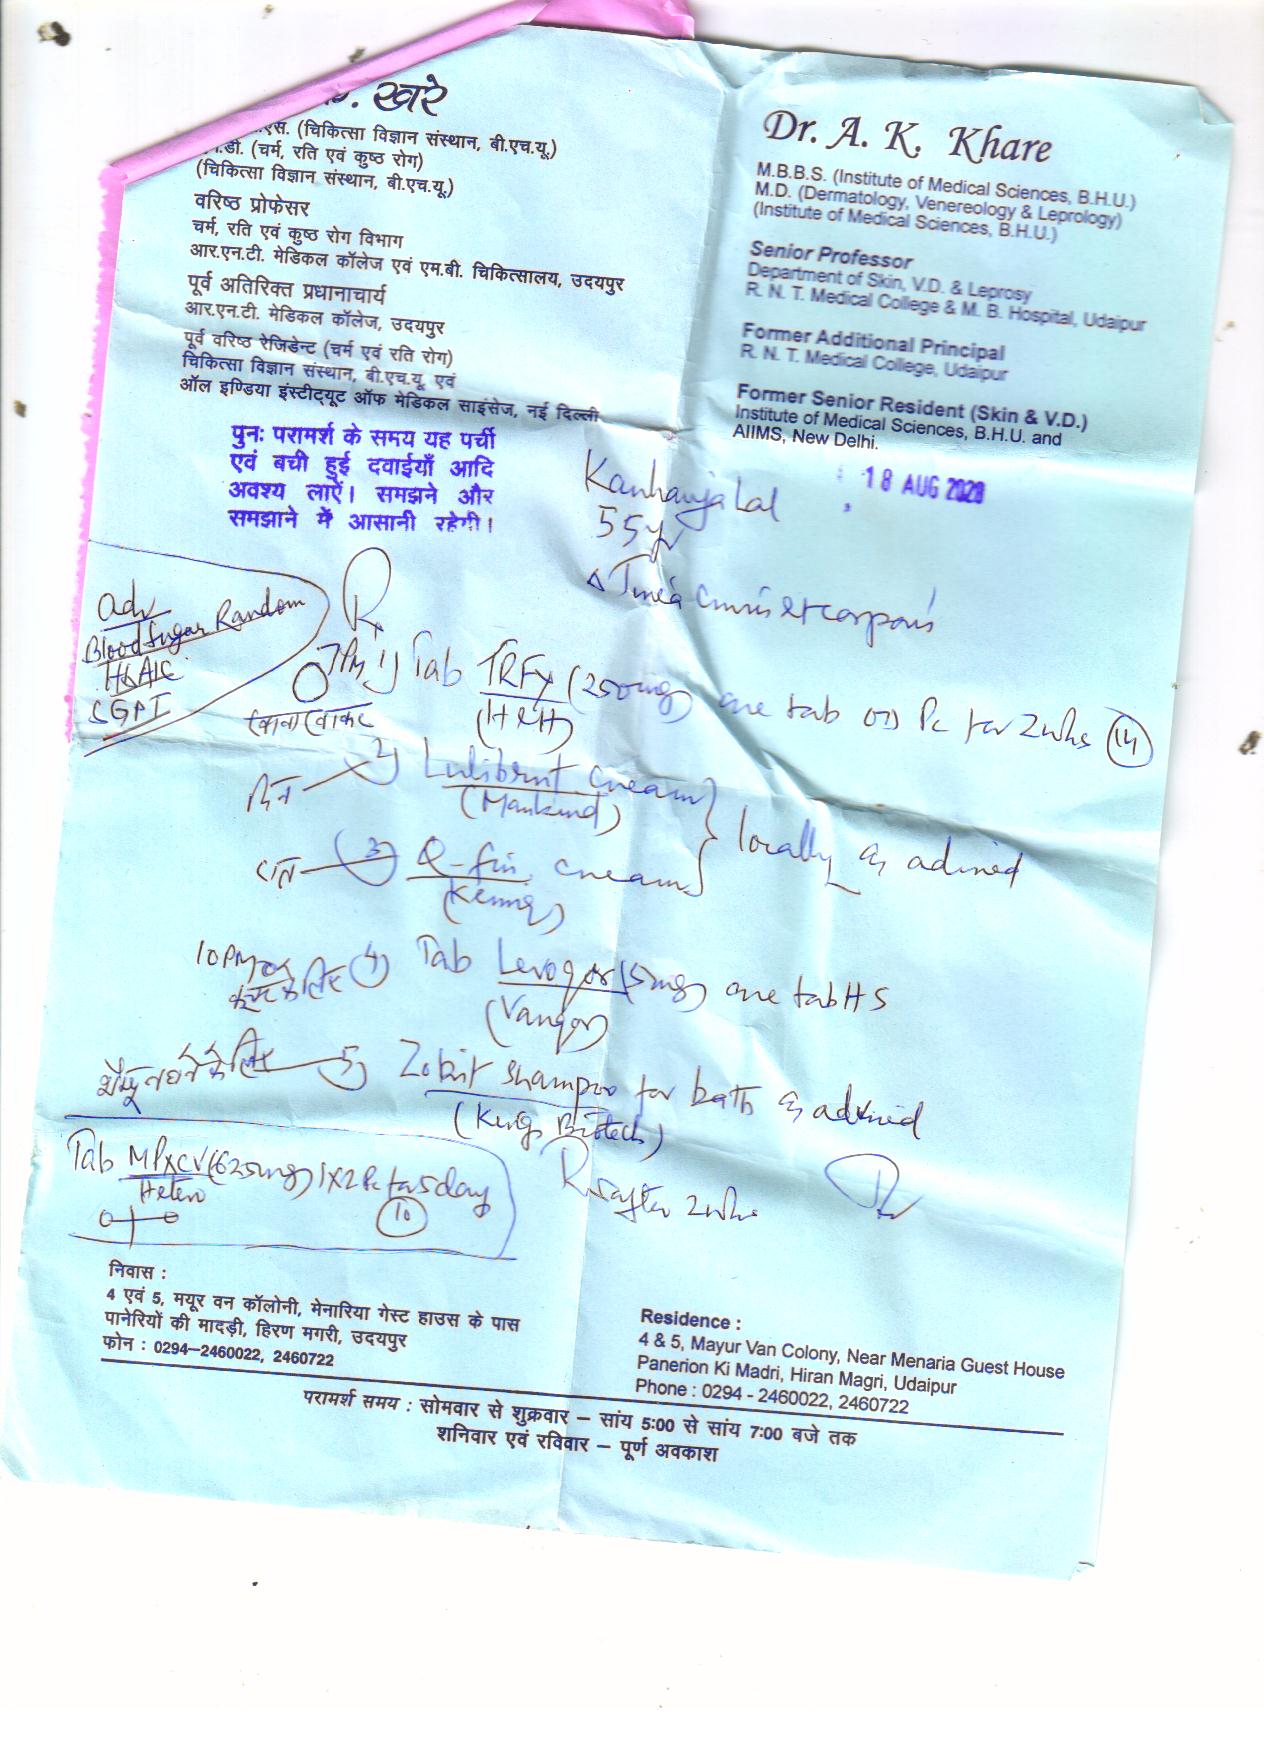 . खरे
.एस. (चिकित्सा विज्ञान संस्थान, बी.एच.यू.)
.डी. (चर्म, रति एवं कुष्ठ रोग)
(चिकित्सा विज्ञान संस्थान, बी.एच.यू.)
वरिष्ठ प्रोफेसर
चर्म, रति एवं कुष्ठ रोग विभाग
आर.एन.टी. मेडिकल कॉलेज एवं एम.बी. चिकित्सालय, उदयपुर
पूर्व अतिरिक्त प्रधानाचार्य
आर.एन.टी. मेडिकल कॉलेज, उदयपुर
पूर्व वरिष्ठ रेजिडेन्ट (चर्म एवं रति रोग)
चिकित्सा विज्ञान संस्थान, बी.एच.यू. एवं
ऑल इण्डिया इंस्टीट्यूट ऑफ मेडिकल साइंसेज, नई दिल्ली
पुनः परामर्श के समय यह पर्ची
एवं बची हुई दवाईयाँ आदि
अवश्य लाऐं। समझने और
समझाने में आसानी रहेगी।
Dr. A. K. Khare
M.B.B.S. (Institute of Medical Sciences, B.H.U.)
M.D. (Dermatology, Venereology & Leprology)
(Institute of Medical Sciences, B.H.U.)
Senior Professor
Department of Skin, V.D. & Leprosy
R. N. T. Medical College & M. B. Hospital, Udaipur
Former Additional Principal
R. N. T. Medical College, Udaipur
Former Senior Resident (Skin & V.D.)
Institute of Medical Sciences, B.H.U. and
AIIMS, New Delhi.
18 AUG
Kanhaiya Lal
55yr
Δ Tinea cruris et corporis
Adv
Blood Sugar Random
HbA1C
SGPT
Rx
7PM 1) Tab TRFy (250mg) one tab OD Pc for 2wks (14)
खाना खाकर (H&H)
दिन 2) cream
(Mankind)
locally as advised
रात (3) Q-fin cream
10PM 4) Tab (5mg) one tab HS
5) shampoo for bath as advised
(Kings Biotech)
Tab MPXCV (625mg) 1X2 Pc for 5 day
(10)
R after 2wks
निवास :
4 एवं 5, मयूर वन कॉलोनी, मेनारिया गेस्ट हाउस के पास
पानेरियों की मादड़ी, हिरण मगरी, उदयपुर
फोन : 0294–2460022, 2460722
Residence :
4 & 5, Mayur Van Colony, Near Menaria Guest House
Panerion Ki Madri, Hiran Magri, Udaipur
Phone : 0294 - 2460022, 2460722
परामर्श समय : सोमवार से शुक्रवार – सांय 5:00 से सांय 7:00 बजे तक
शनिवार एवं रविवार – पूर्ण अवकाश